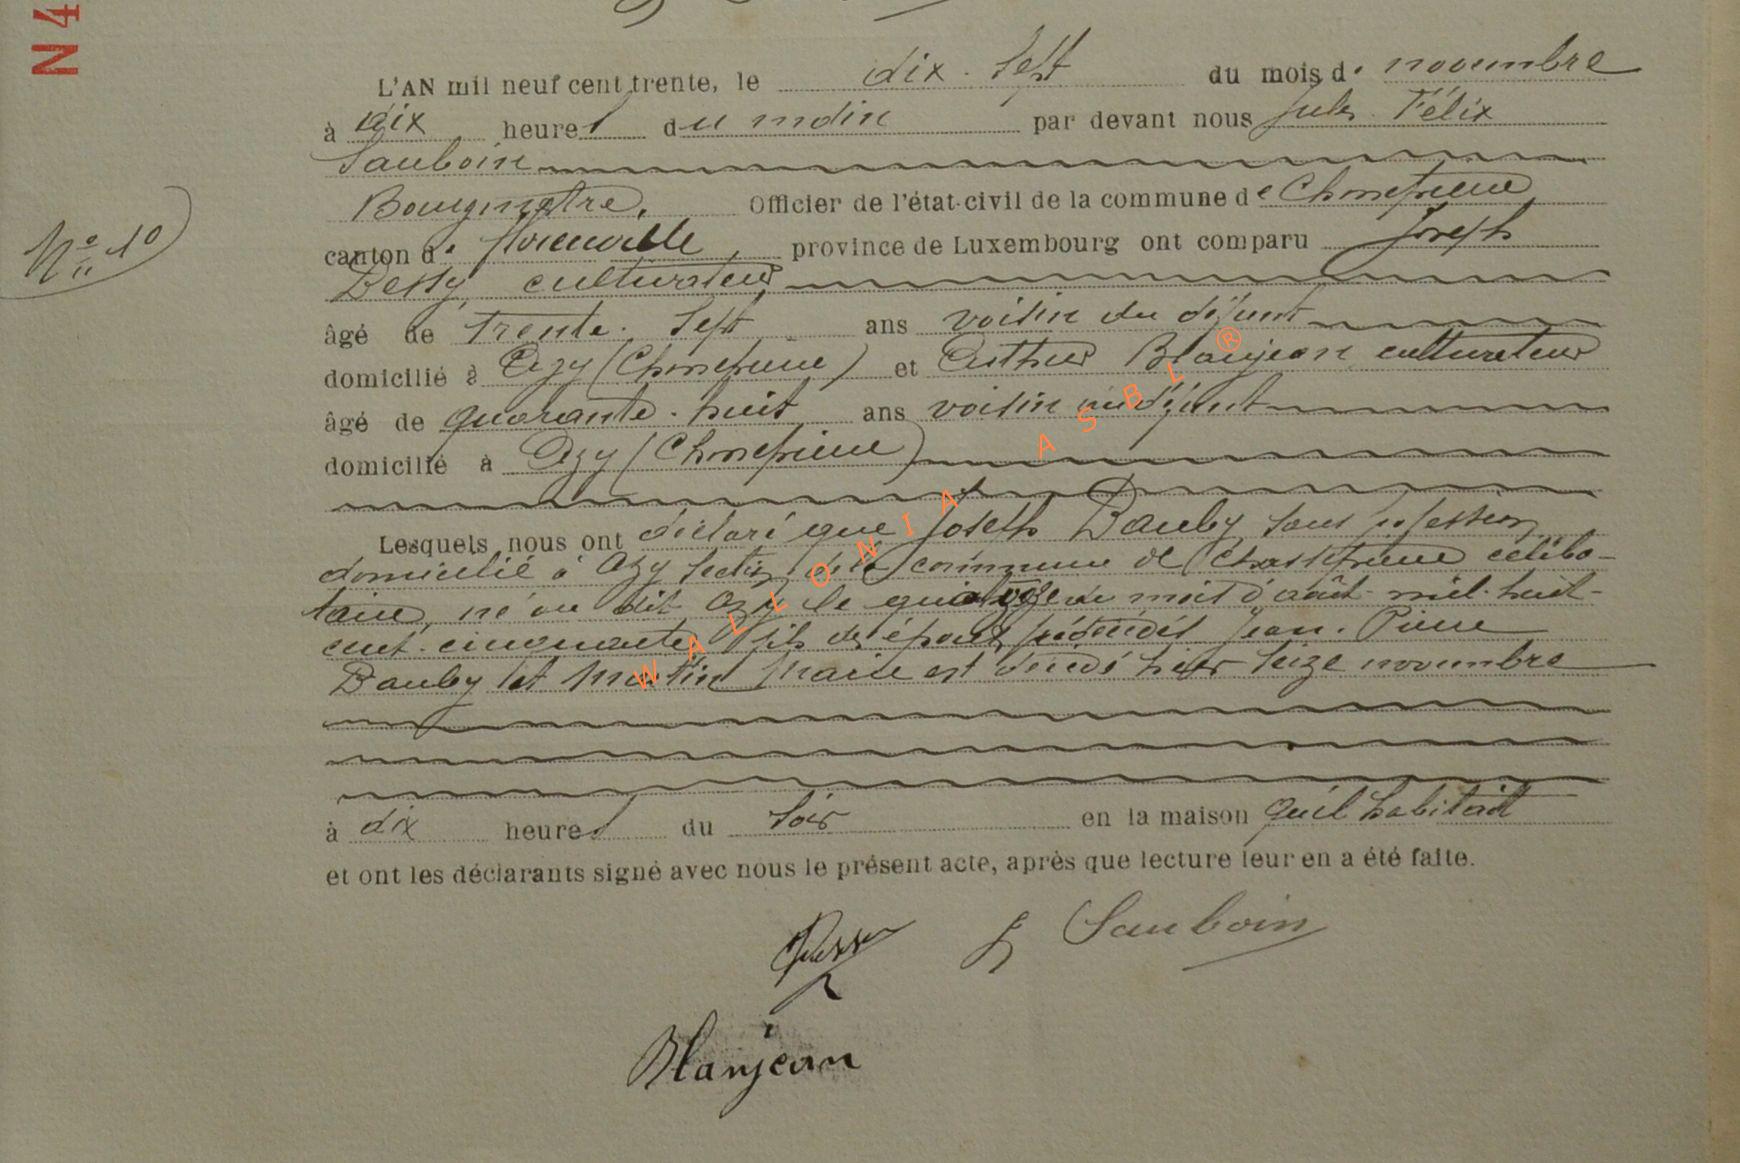 N4
L'AN mil neuf cent trente, le dix-sept du mois de novembre
à dix heures du matin par devant nous Jules Félix
Sauboin
Bourgmestre, Officier de l'état-civil de la commune de Chassepierre
N° 10
canton de Florenville, province de Luxembourg ont comparu Joseph
Dessy, cultivateur
âgé de trente-sept ans voisin du défunt
domicilié à Azy (Chassepierre) et Arthur Blanjean cultivateur
âgé de quarante-huit ans voisin du défunt
domicilié à Azy (Chassepierre)
Lesquels nous ont déclaré que Joseph Bauby sans profession
domicilié à Azy section de la commune de Chassepierre céliba-
taire, né au dit Azy le du mois d'août mil-huit-
cent-cinquante fils des époux Jean-Pierre
Bauby et Martin Marie est décédé hier seize novembre
à dix heures du soir en la maison qu'il habitait
et ont les déclarants signé avec nous le présent acte, après que lecture leur en a été faite.
Sauboin
Blanjean
WALLONIA ASBL ®